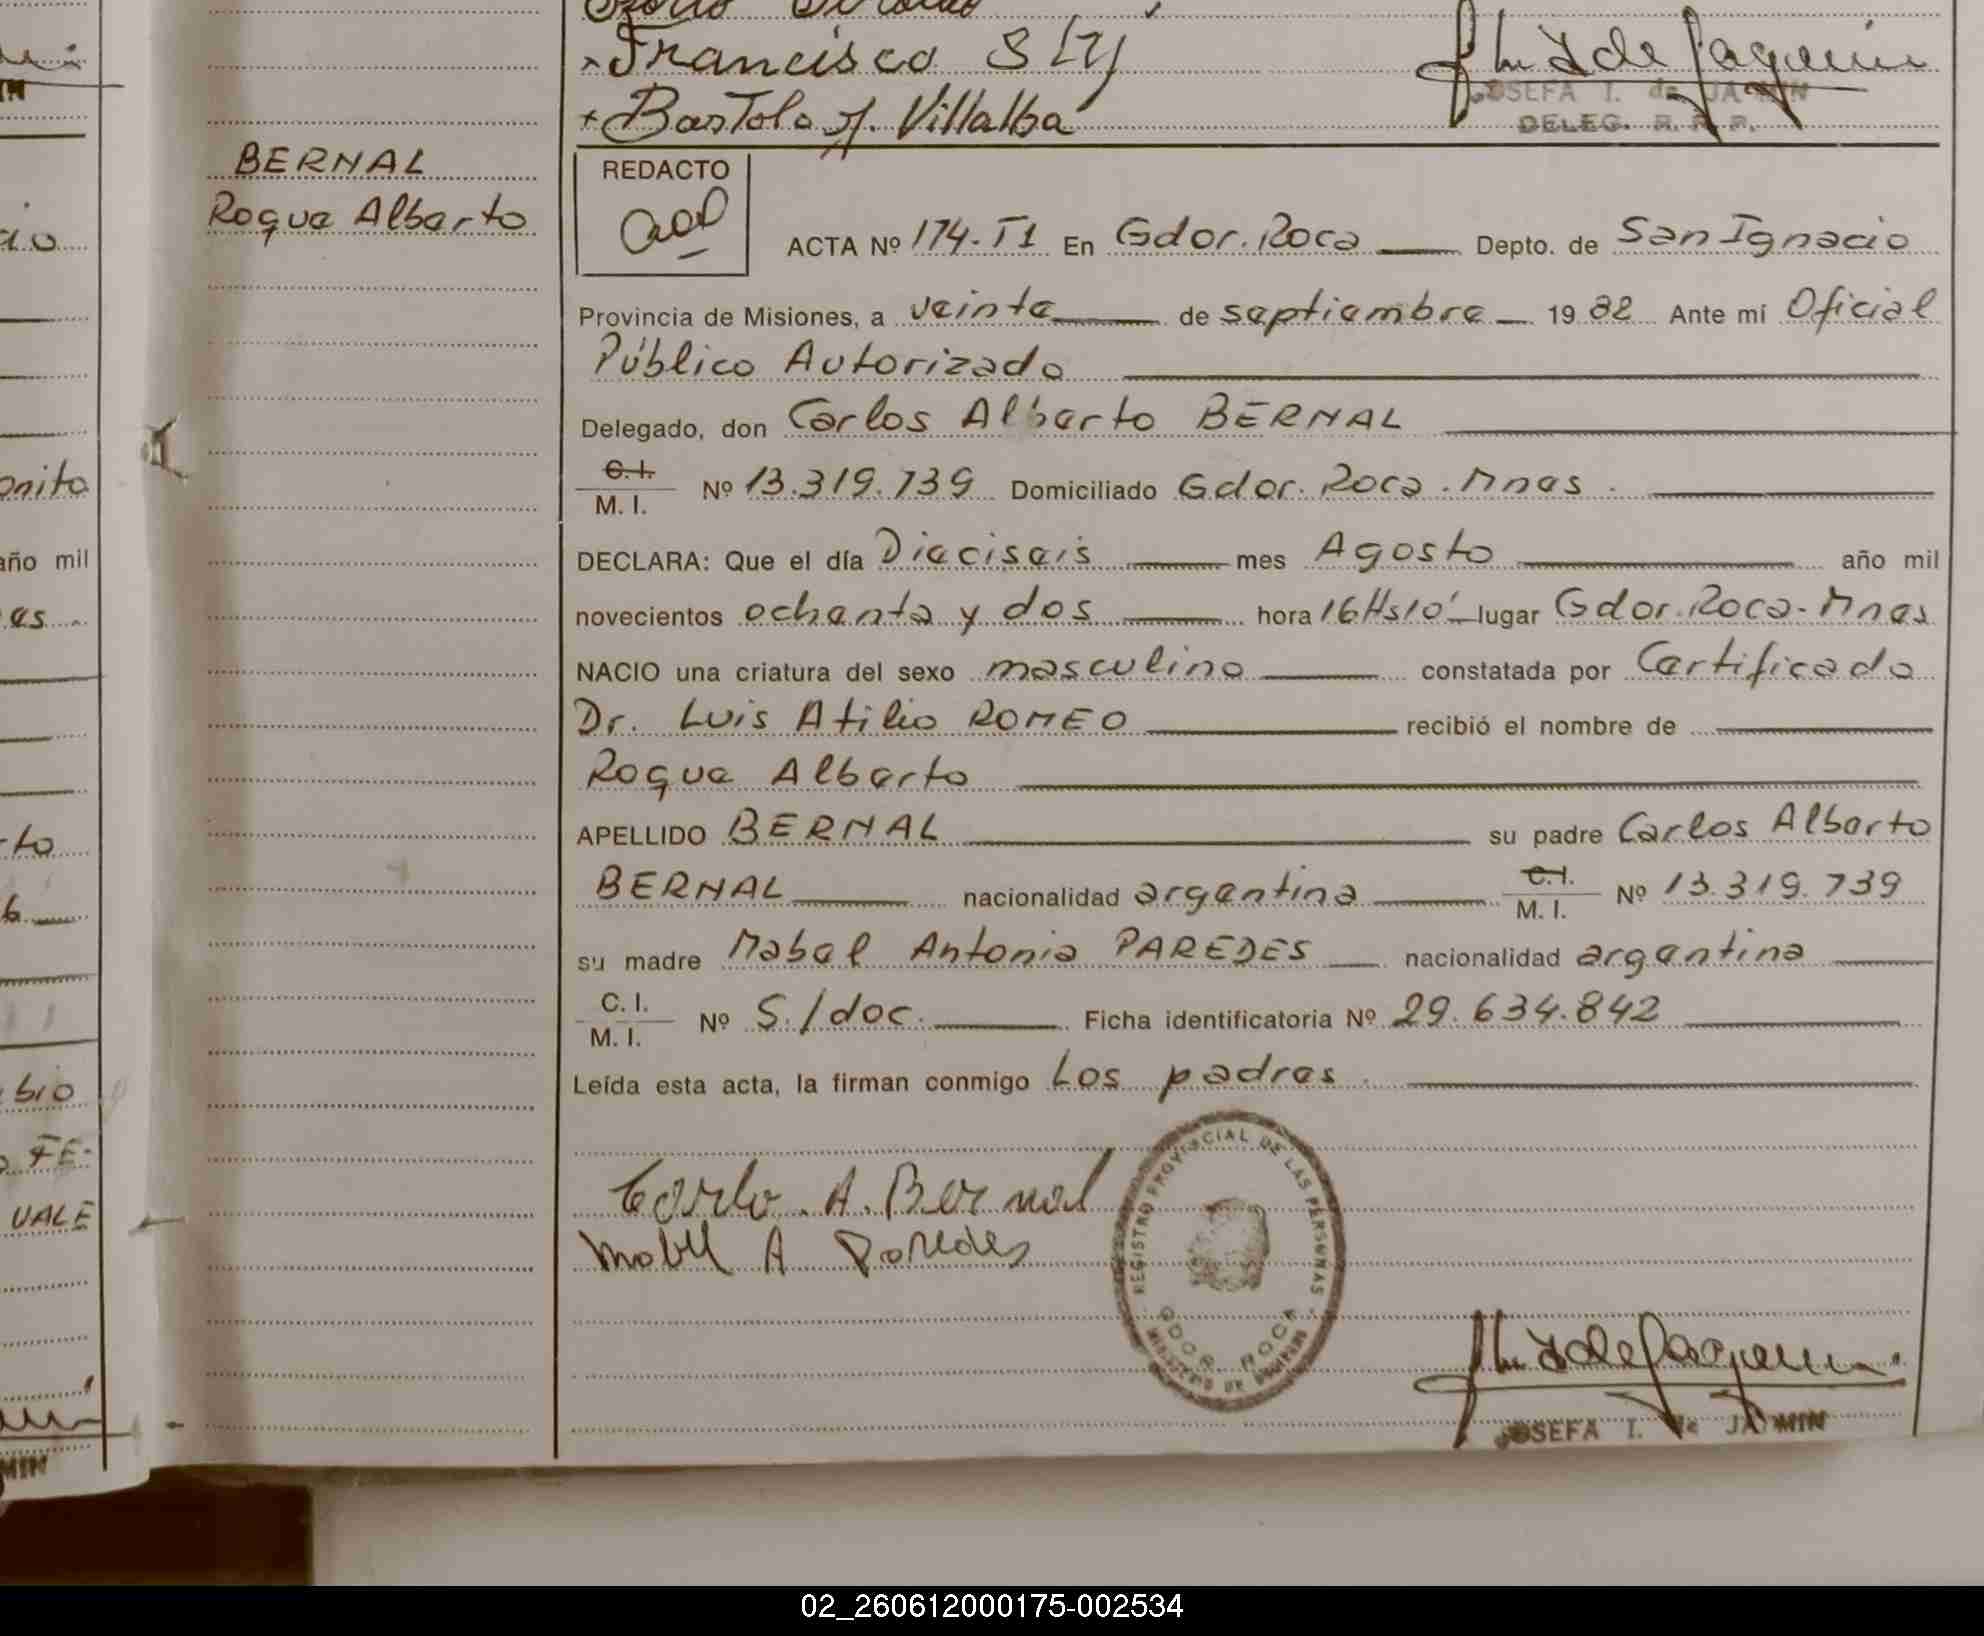 Francisco
Bartolo A. Villalba
JOSEFA I. de JA MIN
DELEG. R. P. P.
BERNAL
Roque Alberto
REDACTO
ACTA Nº 174-T1 En Gdor. Roca Depto. de San Ignacio
Provincia de Misiones, a veinte de septiembre 1982 Ante mí Oficial
Público Autorizado
Delegado, don Carlos Alberto BERNAL
C.I.
M. I. Nº 13.319.739 Domiciliado Gdor. Roca. Mnes.
DECLARA: Que el día Dieciseis mes Agosto año mil
novecientos ochenta y dos hora 16Hs10' lugar Gdor. Roca-Mnes
NACIO una criatura del sexo masculino constatada por Certificado
Dr. Luis Atilio ROMEO recibió el nombre de
Roque Alberto
APELLIDO BERNAL su padre Carlos Alberto
BERNAL nacionalidad argentina C.I. M. I. Nº 13.319.739
su madre Mabel Antonia PAREDES nacionalidad argentina
C. I.
M. I. Nº S./doc. Ficha identificatoria Nº 29.634.842
Leída esta acta, la firman conmigo Los padres.
Carlo. A. Bernal
Mabel A Paredes
REGISTRO PROVINCIAL DE LAS PERSONAS
GDOR. ROCA
JOSEFA I. de JA MIN
onito
año mil
es
VALE
MIN
02_260612000175-002534